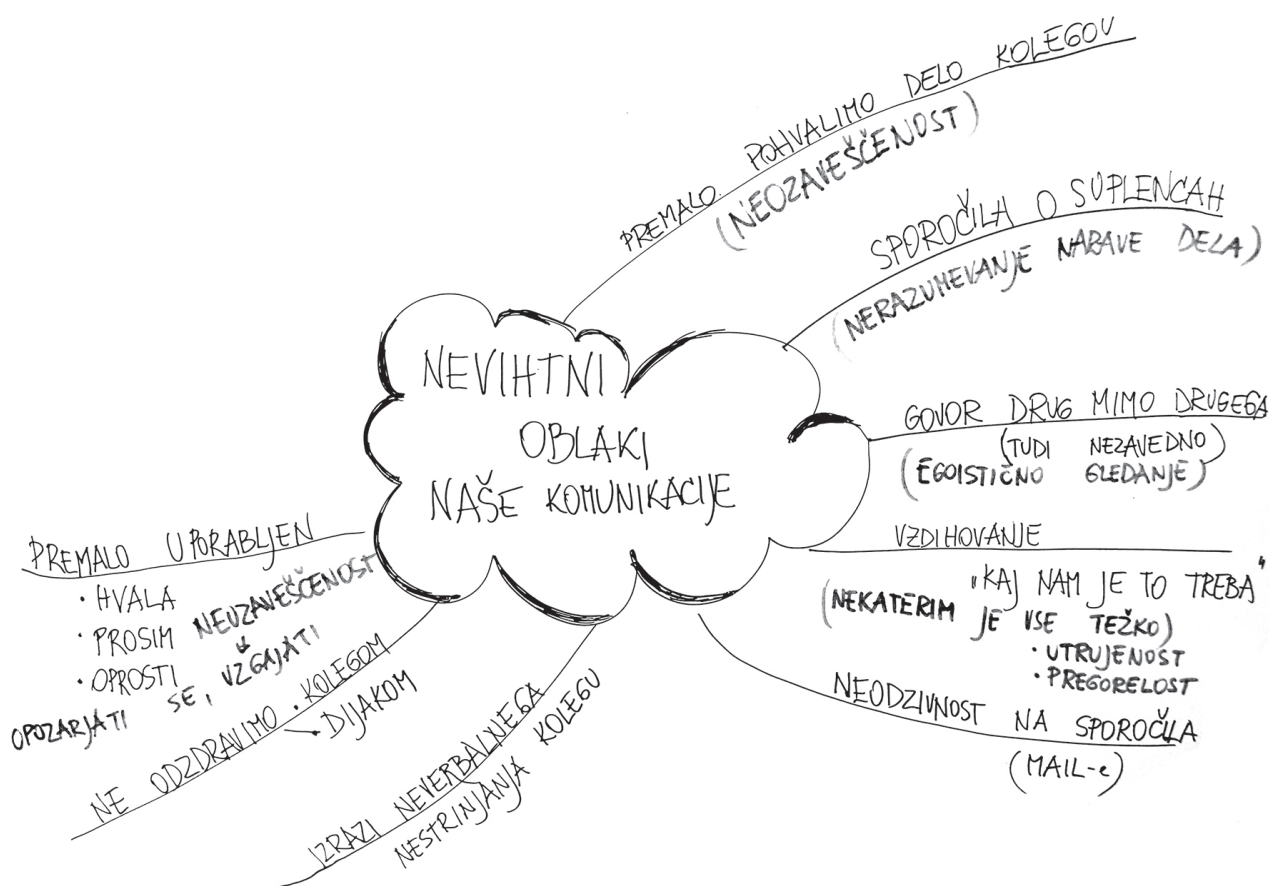 NEVIHTNI
OBLAKI
NAŠE KOMUNIKACIJE
PREMALO POHVALIMO DELO KOLEGOV
(NEOZAVEŠČENOST)
SPOROČILA O SUPLENCAH
(NERAZUMEVANJE NARAVE DELA)
GOVOR DRUG MIMO DRUGEGA
(TUDI NEZAVEDNO)
(EGOISTIČNO GLEDANJE)
VZDIHOVANJE
"KAJ NAM JE TO TREBA"
(NEKATERIM JE VSE TEŽKO)
• UTRUJENOST
• PREGORELOST
NEODZIVNOST NA SPOROČILA
(MAIL-e)
IZRAZI NEVERBALNEGA
NESTRINJANJA KOLEGU
NE ODZDRAVIMO • KOLEGOM
• DIJAKOM
PREMALO UPORABLJEN
• HVALA
• PROSIM
• OPROSTI
NEUZAVEŠČENOST
↓
OPOZARJATI SE, VZGAJATI